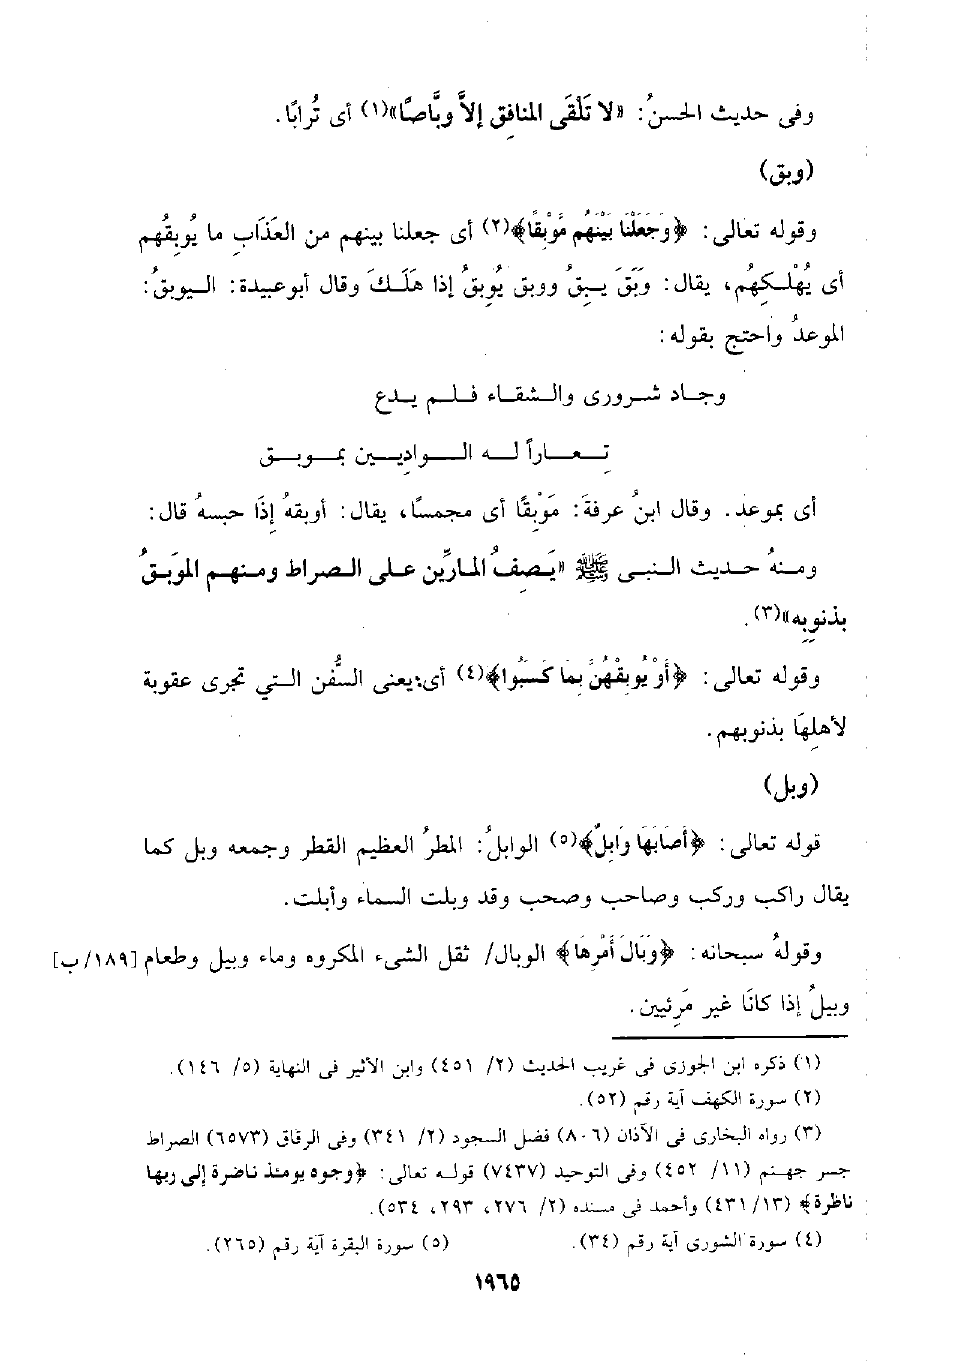 وفى حديث الحسنُ: «لا تَلْقَى المنافِق إلاَّ وبَّاصًّا»(١) أى تُرابًا.
(وبق)
وقوله تعالى: ﴿وَجَعَلْنَا بَيْنَهُم مَّوْبِقًا﴾(٢) أى جعلنا بينهم من العَذَابِ ما يُوبِقُهُم
أى يُهْلِكهُم، يقال: وَبَقَ يَبِقُ ووبق يُوبِقُ إذا هَلَكَ وقال أبوعبيدة: اليوبقُ:
الموعدُ واحتج بقوله:
وجاد شرورى والشقاء فلم يدع
تِعاراً له الوادِيين بموبق
أى بموعد. وقال ابنُ عرفةَ: مَوْبِقًا أى مجمسًا، يقال: أوبقهُ إذَا حبسهُ قال:
ومنهُ حديث النبى ﷺ «يَصِفُ المارِّين على الصراط ومنهم الموبَقُ
بذنوبِه»(٣).
وقوله تعالى: ﴿أَوْ يُوبِقْهُنَّ بِمَا كَسَبُوا﴾(٤) أى: يعنى السُّفن التي تجرى عقوبة
لأهلِهَا بذنوبهم.
(وبل)
قوله تعالى: ﴿أَصَابَهَا وَابِلٌ﴾(٥) الوابلُ: المطرُ العظيم القطر وجمعه وبل كما
يقال راكب وركب وصاحب وصحب وقد وبلت السماء وأبلت.
وقولهُ سبحانه: ﴿وَبَالَ أَمْرِهَا﴾ الوبال/ ثقل الشىء المكروه وماء وبيل وطعام [١٨٩/ب]
وبيلُ إذا كانَا غير مَرِئيين.
(١) ذكره ابن الجوزى فى غريب الحديث (٢/ ٤٥١) وابن الأثير فى النهاية (٥/ ١٤٦).
(٢) سورة الكهف آية رقم (٥٢).
(٣) رواه البخارى فى الآذان (٨٠٦) فضل السجود (٢/ ٣٤١) وفى الرقاق (٦٥٧٣) الصراط
جسر جهنم (١١/ ٤٥٢) وفى التوحيد (٧٤٣٧) قوله تعالى: ﴿وجوه يومئذ ناضرة إلى ربها
ناظرة﴾ (١٣/ ٤٣١) وأحمد فى مسنده (٢/ ٢٧٦، ٢٩٣، ٥٣٤).
(٤) سورة الشورى آية رقم (٣٤).
(٥) سورة البقرة آية رقم (٢٦٥).
١٩٦٥